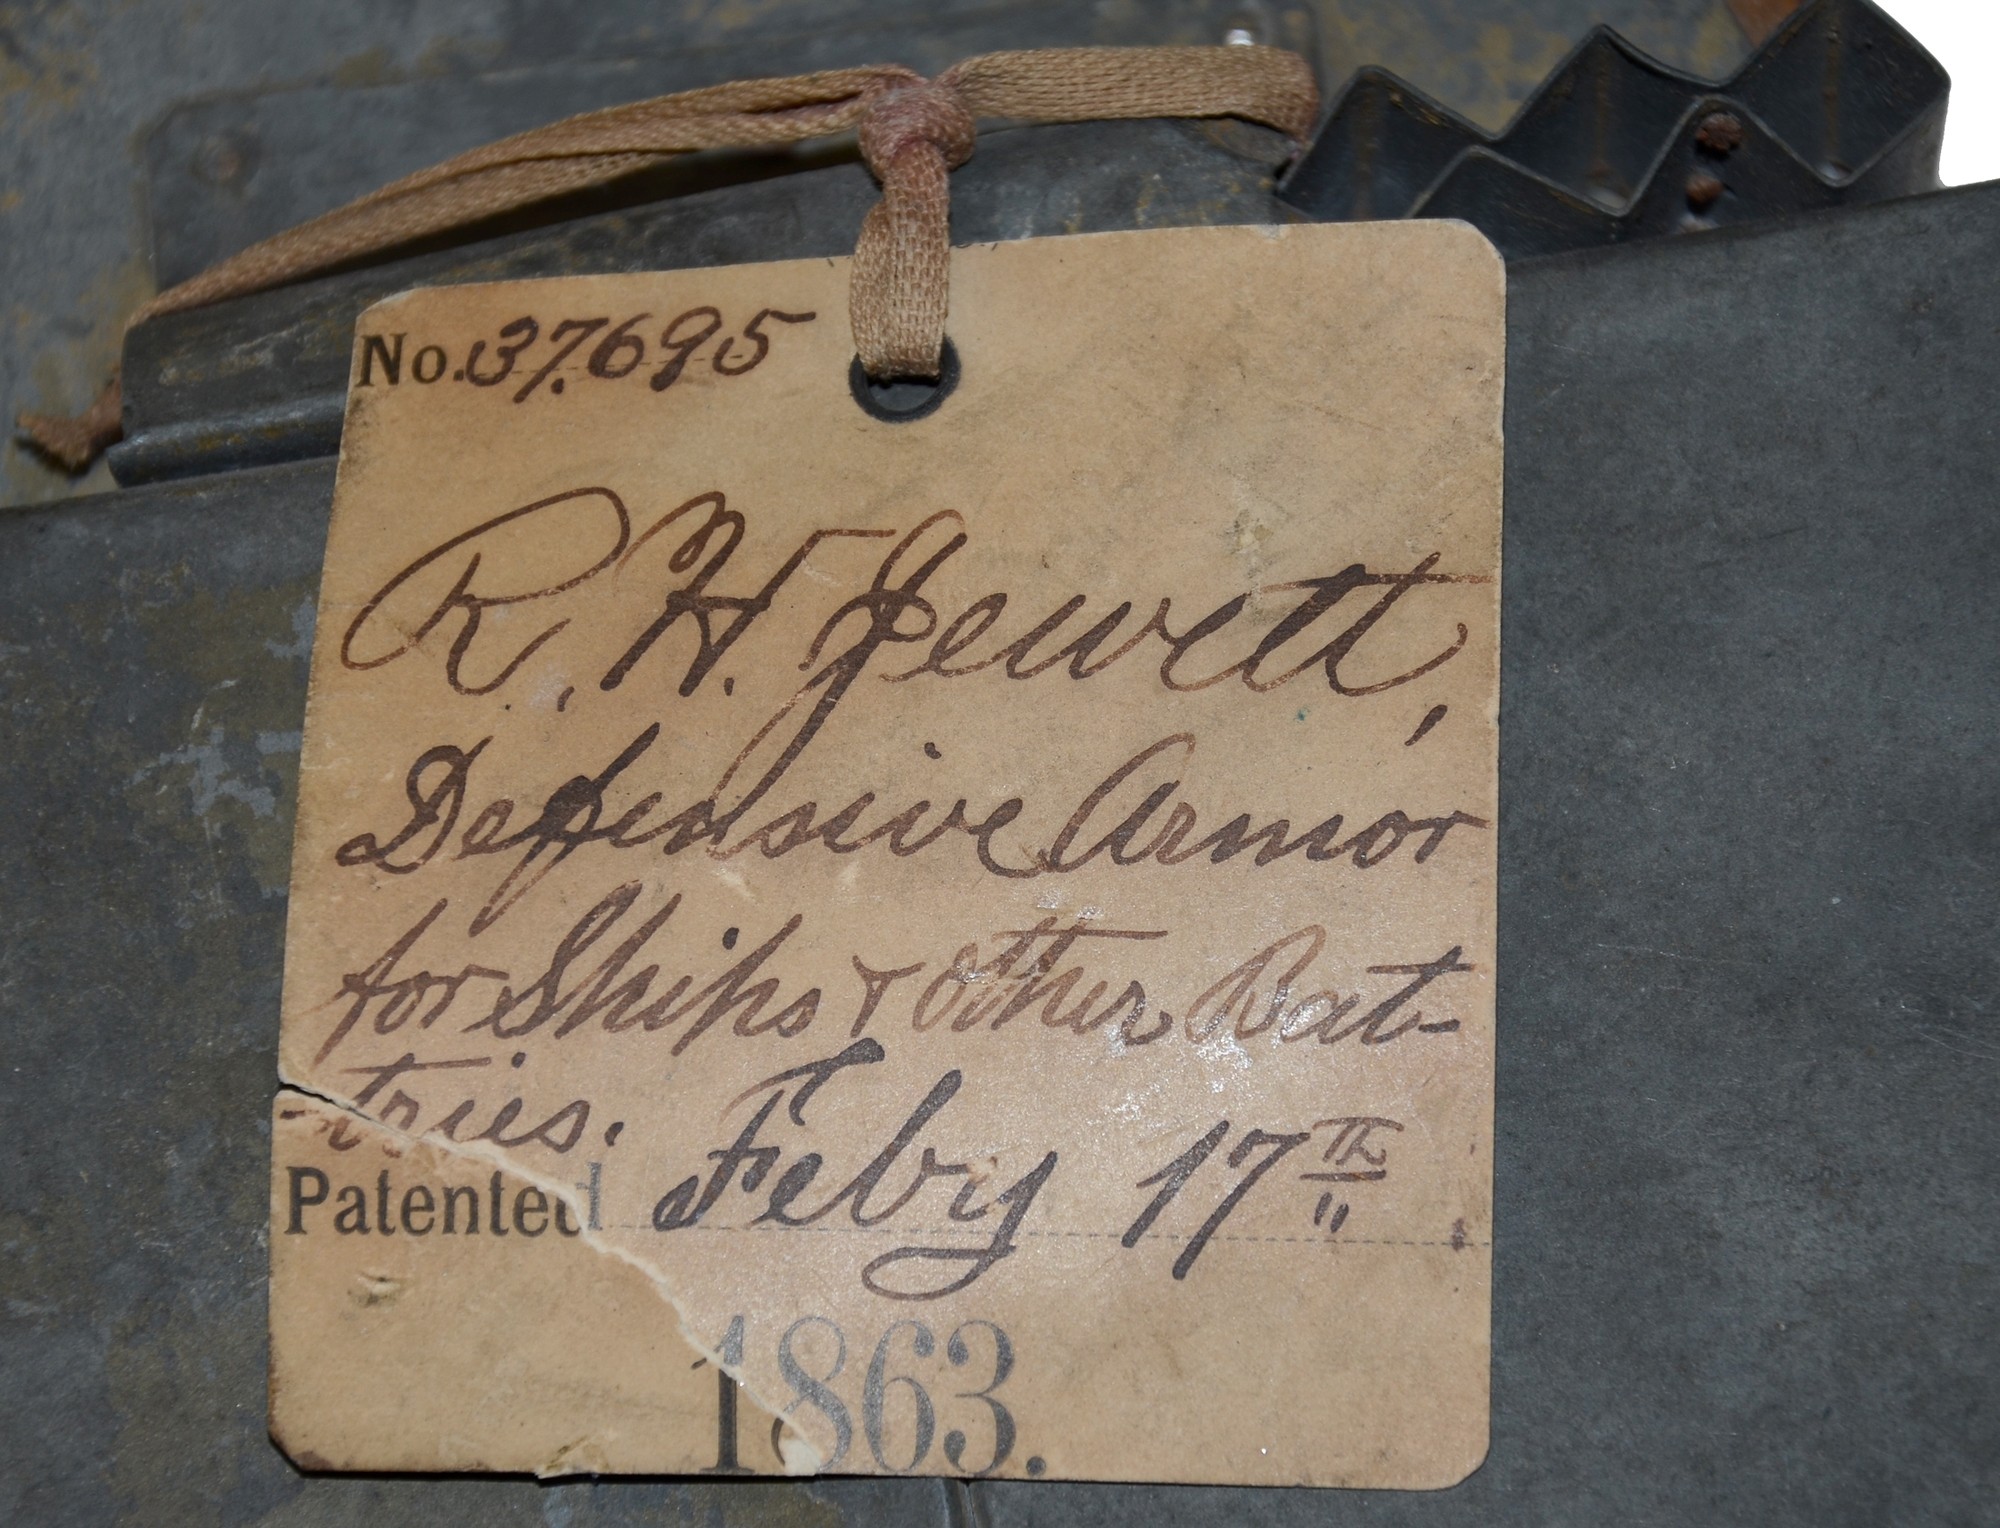 No. 37.695
R. H. Jewett,
Defensive Armor
for Ships & other Bat-
tries.
Patented Feby 17th
1863.